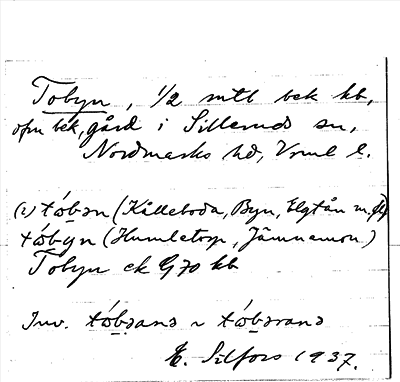 Tobyn, 1/2 mtl bek kb,
ofvn bek, gård i Sillerud sn,
Nordmarks hd, Vrml l.
(2) tóbən (Källeboda, Byn, Elgtån m.fl.)
tóbyn (Humletorp, Jämnemon)
Tobyn ek G 70 kb
Inv. tóbəanə ~ tóbəranə
E. Silfors 1937.